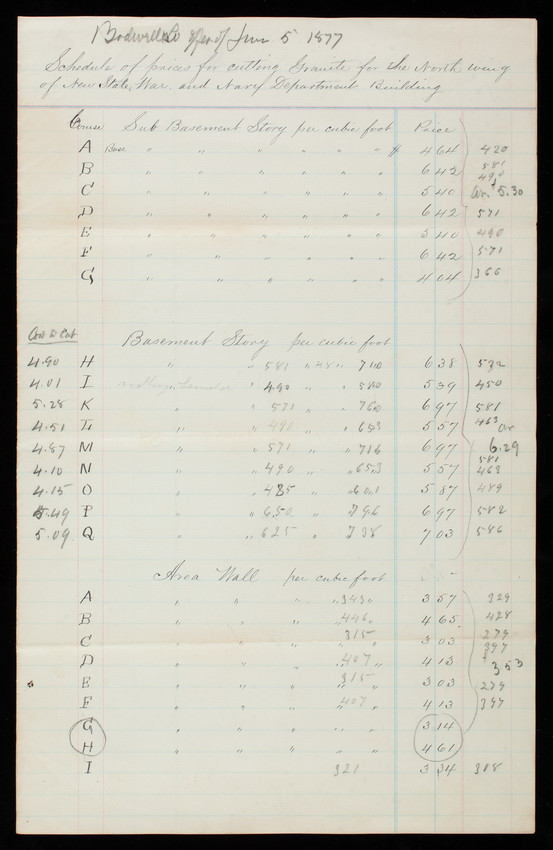 Bodwell Co offer of Jan 5 1877
Schedule of prices for cutting Granite for the North wing
of New State, War, and Navy Department Building
Course Sub Basement Story per cubic foot Price
A Base " " " " " " $ 4 64 420
B " " " " " " 6 42 581
490
C " " " " " 5 40 av. 5.30
D " " " " " " 6 42 571
E " " " " " " 5 40 490
F " " " " " " 6 42 571
G " " " " " " 4 04 366
Cost to Cut Basement Story per cubic foot
4.90 H " " 581 " 48 " 710 6 38 532
4.01 I " 490 " 580 5 39 450
5.28 K " " 571 " 760 6 97 581
4.51 L " " 491 " 653 5 57 463 av
4.87 M " " 571 " 716 6 97 6.29
581
4.10 N " " 490 " 653 5 57 463
4.15 O " " 485 " 601 5 87 489
5.49 P " " 650 " 796 6 97 582
5.09 Q " " 625 " 738 7 03 586
Area Wall per cubic foot
A " " " " 343 " 3 57 329
B " " " " 446 " 4 65 428
C " " " 315 " 3 03 279
397
D " " " " 407 " 4 13 353
E " " " 315 " 3 03 279
F " " " 407 " 4 13 397
G " " " " " 3 14
H " " " " " 4 61
I 321 3 34 308